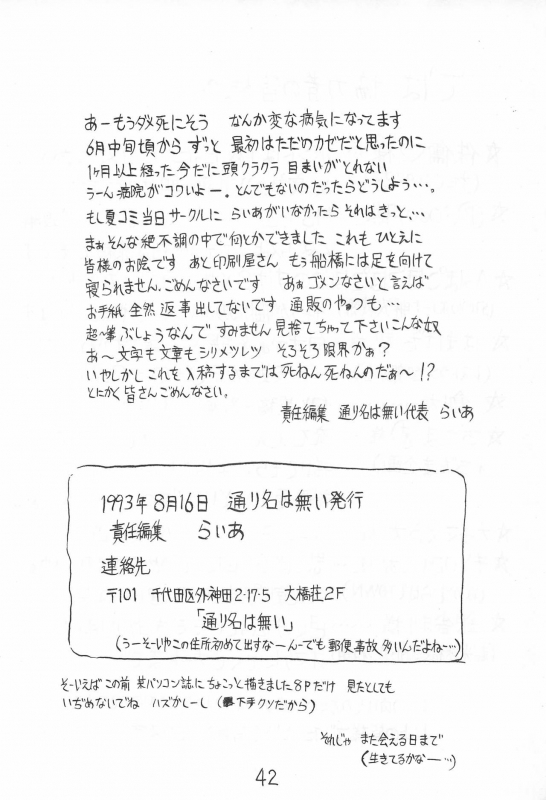 あーもうダメ死にそう なんか変な病気になってます
6月中旬頃から ずっと 最初はただのカゼだと思ったのに
1ヶ月以上経った今だに頭クラクラ 目まいがとれない
うーん病院がコワいよー。とんでもないのだったらどうしよう…。
もし夏コミ当日サークルに らいあがいなかったら それはきっと…
まぁそんな絶不調の中で何とかできました これも ひとえに
皆様のお陰です あと印刷屋さん もう船橋には足を向けて
寝られません。ごめんなさいです あぁ ゴメンなさいと言えば
お手紙 全然 返事出してないです 通販のやつも…
超〜筆ぶしょうなんで すみません 見捨てちゃって下さいこんな奴
あ〜 文字も文章もシリメツレツ そろそろ限界かぁ?
いやしかし これを入稿するまでは 死ねん死ねんのだぁ〜!?
とにかく皆さんごめんなさい。
責任編集 通り名は無い代表 らいあ
1993年8月16日 通り名は無い発行
責任編集 らいあ
連絡先
〒101 千代田区外神田2-17-5 大橋荘2F
「通り名は無い」
(うーそーいやこの住所初めて出すなーんーでも郵便事故多いんだよねー…)
そーいえばこの前 某パソコン誌にちょこっと描きました8Pだけ 見たとしても
いぢめないでね ハズかしーし (下手クソだから)
それじゃ また会える日まで
(生きてるかなー…)
42